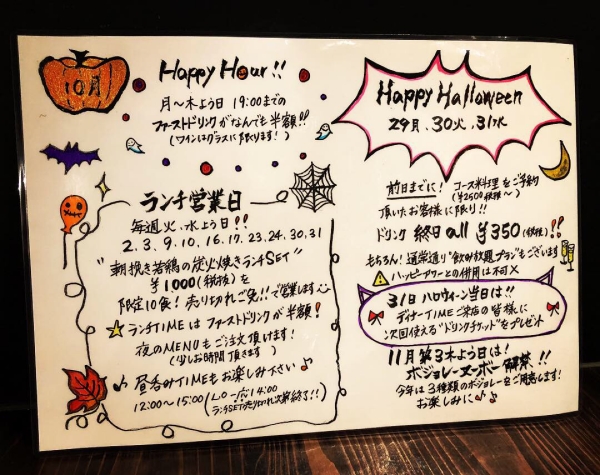 10月
Happy Hour!!
月〜木よう日 19:00までの
ファーストドリンクがなんでも半額!!
(ワインはグラスに限ります!)
ランチ営業日
毎週火、水よう日!!
2.3.9.10.16.17.23.24.30.31
"朝挽き若鶏の炭火焼きランチSET"
¥1000(税抜)を
限定10食!売り切れご免!!で営業します
ランチTIMEはファーストドリンクが半額!
夜のMENUもご注文頂けます!
(少しお時間頂きます)
♪昼呑みTIMEもお楽しみ下さい♪
12:00〜15:00
(L.O 14:00
ランチSET売り切れ次第終了!!)
Happy Halloween
29月、30火、31水
前日までに!コース料理をご予約
(¥2500税抜〜)
頂いたお客様に限り!!
ドリンク 終日all ¥350(税抜)!!
もちろん!通常通り"飲み放題プラン"もございます
ハッピーアワーとの併用は不可×
31日ハロウィーン当日は!!
ディナーTIMEご来店の皆様に
次回使える"ドリンクチケット"をプレゼント
11月第3木よう日は!
ボジョレーヌーボー解禁!!
今年は3種類のボジョレーをご用意します!
お楽しみに♪♪